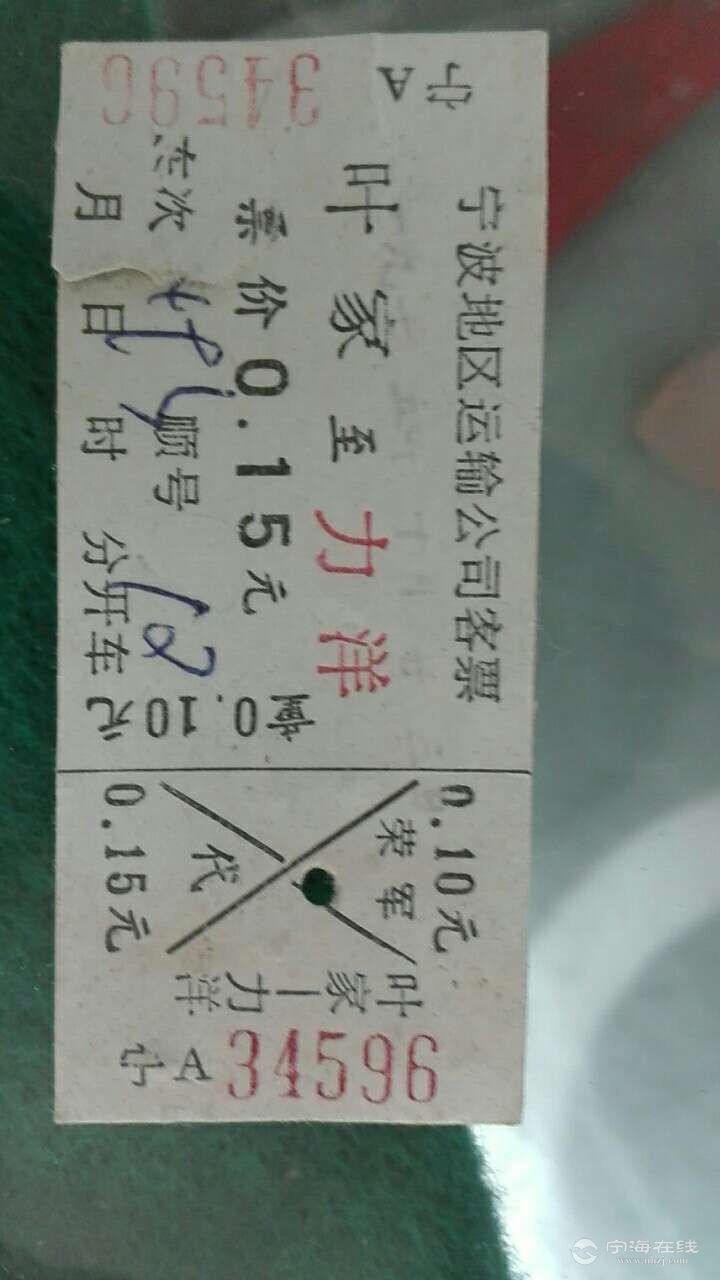 宁波地区运输公司客票
叶家至力洋
票价0.15元
次 顺号
月 日 时 分开车
A
34596
0.10元
0.10元
荣军
代
0.15元
叶家—力洋
A 34596
宁海在线
www.nhzj.com